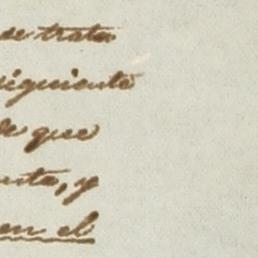 se trata
siguiente
de que
nta, y
en el